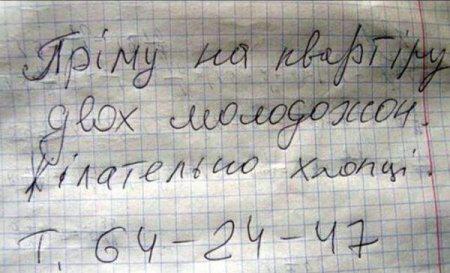 Пріму на квартіру
двох молодожон.
Жілательно хлопці.
Т. 64-24-47